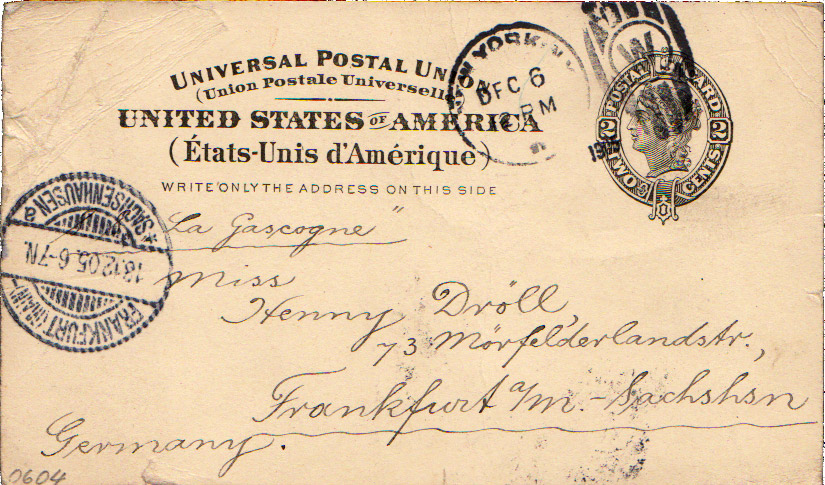 UNIVERSAL POSTAL UNION
(Union Postale Universelle)
UNITED STATES OF AMERICA
(États-Unis d'Amérique)
WRITE ONLY THE ADDRESS ON THIS SIDE
NEW YORK, N.Y.
DEC 6
PM
1905
W
POSTAL CARD
2 2
TWO CENTS
"La Gascogne"
Miss
Henny Dröll,
73 Mörfelderlandstr.,
Frankfurt a/m.-Sachshsn
Germany.
* SACHSENHAUSEN a
13.12.05. 6-7N.
FRANKFURT (MAIN)
0604